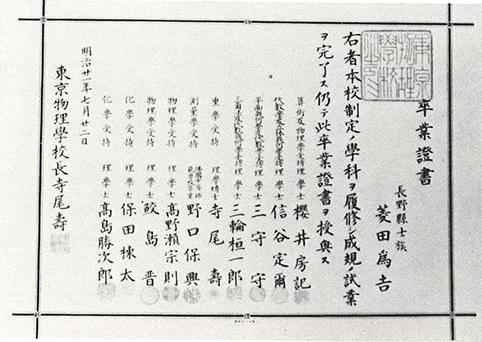 東京物理學校之印
卒業證書
長野縣士族
菱田為吉
右者本校制定ノ學科ヲ履修シ成規ノ試業
ヲ完了ス仍テ此卒業證書ヲ授與ス
算術及物理學受持 理學士 櫻井房記
理學士 信谷定爾
理學士 三守守
理學士 三輪桓一郎
重學受持 理學博士 寺尾壽
測量學受持 野口保興
物理學受持 理學士 高野瀬宗則
物理學受持 理學士 鮫島晋
化學受持 理學士 保田棟太
化學受持 理學士 高島勝次郎
明治廿一年七月廿二日
東京物理學校長寺尾壽